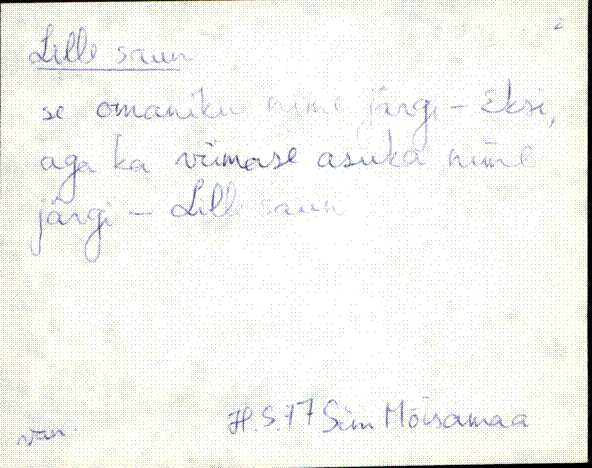 2
Lille saun
se omaniku nime järgi – Eksi,
aga ka viimase asuka nime
järgi – Lille saun
H.S.17 Siim Mõisamaa
van.